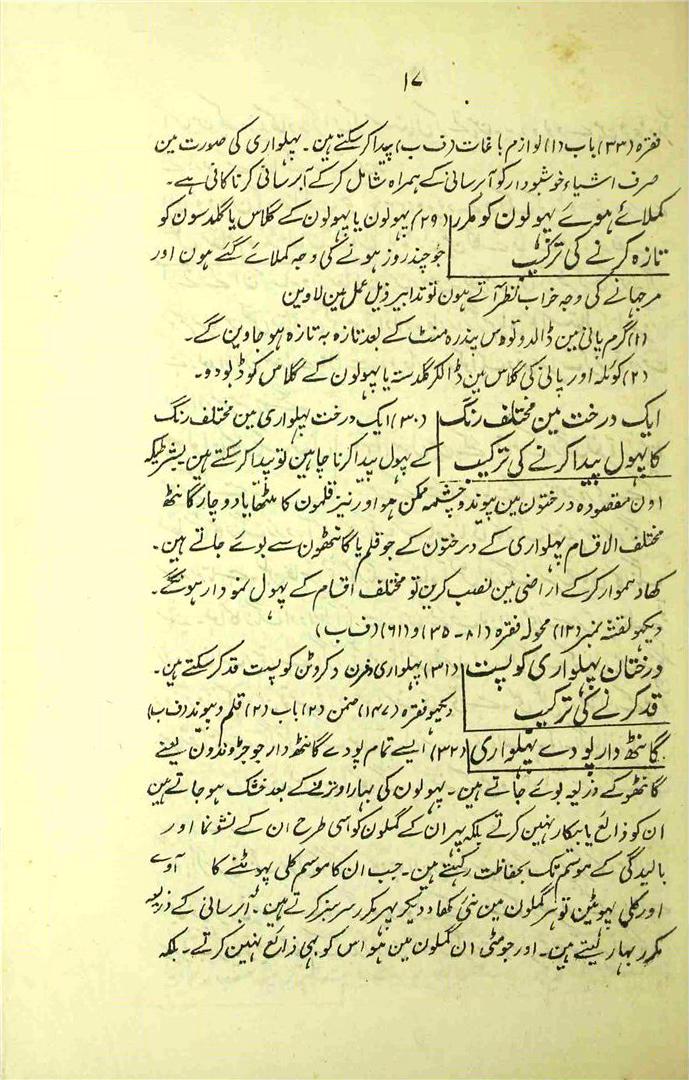 ۱۷
فقرہ (۳۳) باب (۱) لوازم باغات (ف ب) پیدا کر سکتے ہین۔ پہلواری کی صورت مین
صرف اشیاء خوشبودار کو آبرسانی کے ہمراہ شامل کر کے آبرسانی کرنا کافی ہے۔
کملائے ہوے پہولون کو مکرر (۲۹) پہولون یا پہولون کے گلاس یا گلدسون کو
تازہ کرنے کی ترکیب جو چند روز ہونے کی وجہ کملائے گئے ہون اور
مرجہانے کی وجہ خراب نظر آتے ہون تو تدابیر ذیل عمل مین لاوین
(۱) گرم پانی مین ڈالدو تو دس پندرہ منٹ کے بعد تازہ بہ تازہ ہو جاوین گے۔
(۲) کوئلہ اور پانی کی گلاس مین ڈالکر گلدستہ یا پہولون کے گلاس کو ڈبو دو۔
ایک درخت مین مختلف رنگ (۳۰) ایک درخت پہلواری مین مختلف رنگ
کا پہول پیدا کرنے کی ترکیب کے پہول پیدا کرنا چاہین تو پیدا کر سکتے ہین بشرطیکہ
اون مقصودہ درختون مین پیوند و چشمہ ممکن ہو اور نیز قلمون کا مٹھا یا دو چار گانٹھ
مختلف الاقسام پہلواری کے درختون کے جو قلم یا گانٹھون سے بوے جاتے ہین۔
کھاد ہموار کر کے اراضی مین نصب کرین تو مختلف اقسام کے پہول نمودار ہونگے۔
دیکہو نقشہ نمبر (۱۲) محولہ فقرہ (۸۱-۳۵) و (۶۱) (ف ب)
درختان پہلواری کو پست (۳۱) پہلواری فرن و کروٹن کو پست قد کر سکتے ہین۔
قد کرنے کی ترکیب دیکہو فقرہ (۱۴۷) ضمن (۲) باب (۲) قلم و پیوند (ف ب)
گانٹھ دار پودے پہلواری (۳۲) ایسے تمام پودے گانٹھ دار جو جڑ و نڈون یعنے
گانٹھو کے ذریعہ بوئے جاتے ہین۔ پہولون کی بہار اوترنیکے بعد خشک ہو جاتے ہین
ان کو ذائع یا بیکار نہین کرتے بلکہ پہر ان کے گملون کو اسی طرح ان کے نشو نما اور
بالیدگی کے موسم تک بحفاظت رکہتے ہین۔ جب ان کا موسم کلی پہوٹنے کا آوے
اور کلی پہوٹین تو ہر گملون مین نئی کھاد دیکر پہر مکرر سرسبز کرتے ہین۔ آبرسانی کے ذریعہ
مکرر بہار لیتے ہین۔ اور جو مٹی ان گملون مین ہو اس کو بہی ذائع نہین کرتے۔ بلکہ